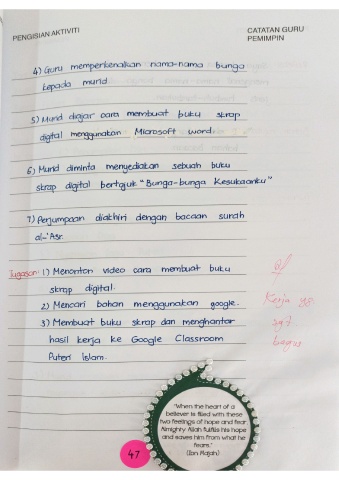 PENGISIAN AKTIVITI
CATATAN GURU
PEMIMPIN
4) Guru memperkenalkan nama-nama bunga
kepada murid.
5) Murid diajar cara membuat buku skrap
digital menggunakan Microsoft word.
6) Murid diminta menyediakan sebuah buku
skrap digital bertajuk "Bunga-bunga Kesukaanku"
7) Perjumpaan diakhiri dengan bacaan surah
al-'Asr.
Tugasan: 1) Menonton video cara membuat buku
skrap digital.
2) Mencari bahan menggunakan google.
3) Membuat buku skrap dan menghantar
hasil kerja ke Google Classroom
Puteri Islam.
Kerja yg
sgt
bagus
"When the heart of a
believer is filled with these
two feelings of hope and fear,
Almighty Allah fulfils his hope
and saves him from what he
fears."
(Ibn Majah)
47